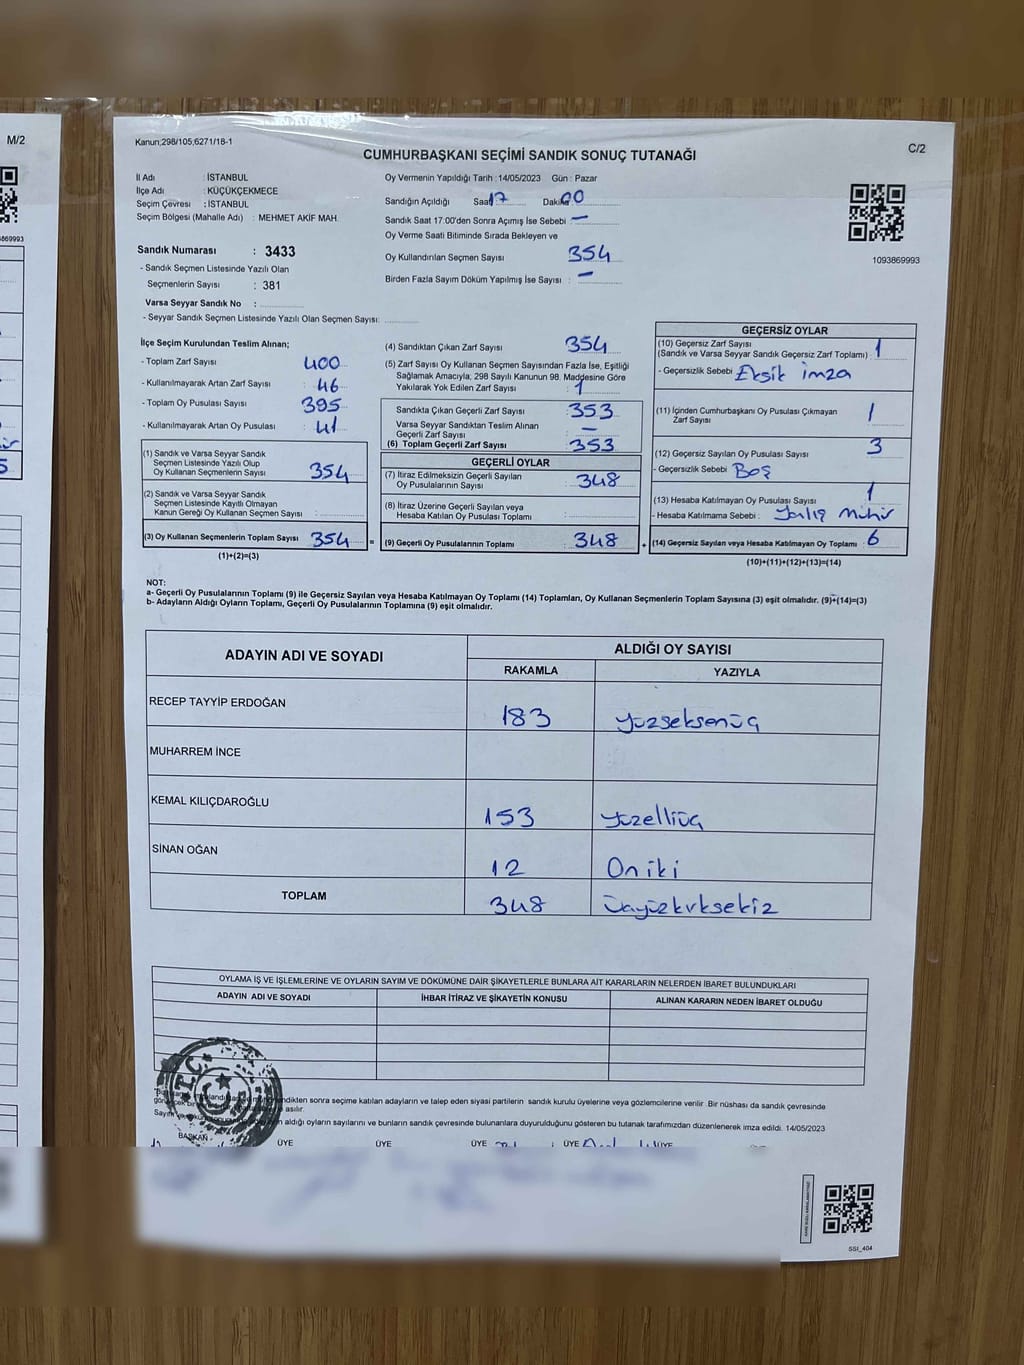 M/2
869993
Kanun;298/105;6271/18-1
C/2
CUMHURBAŞKANI SEÇİMİ SANDIK SONUÇ TUTANAĞI
İl Adı : İSTANBUL
İlçe Adı : KÜÇÜKÇEKMECE
Seçim Çevresi : İSTANBUL
Seçim Bölgesi (Mahalle Adı) : MEHMET AKİF MAH.
Sandık Numarası : 3433
- Sandık Seçmen Listesinde Yazılı Olan
Seçmenlerin Sayısı : 381
Varsa Seyyar Sandık No :
- Seyyar Sandık Seçmen Listesinde Yazılı Olan Seçmen Sayısı:
Oy Vermenin Yapıldığı Tarih : 14/05/2023 Gün : Pazar
Sandığın Açıldığı Saat 17 Dakika 00
Sandık Saat 17:00'den Sonra Açımış İse Sebebi —
Oy Verme Saati Bitiminde Sırada Bekleyen ve
Oy Kullandırılan Seçmen Sayısı 354
Birden Fazla Sayım Döküm Yapılmış İse Sayısı : —
1093869993
İlçe Seçim Kurulundan Teslim Alınan;
- Toplam Zarf Sayısı : 400
- Kullanılmayarak Artan Zarf Sayısı : 46
- Toplam Oy Pusulası Sayısı : 395
- Kullanılmayarak Artan Oy Pusulası : 41
(1) Sandık ve Varsa Seyyar Sandık
Seçmen Listesinde Yazılı Olup
Oy Kullanan Seçmenlerin Sayısı 354
(2) Sandık ve Varsa Seyyar Sandık
Seçmen Listesinde Kayıtlı Olmayan
Kanun Gereği Oy Kullanan Seçmen Sayısı :
(3) Oy Kullanan Seçmenlerin Toplam Sayısı 354 =
(1)+(2)=(3)
(4) Sandıktan Çıkan Zarf Sayısı 354
(5) Zarf Sayısı Oy Kullanan Seçmen Sayısından Fazla İse, Eşitliği
Sağlamak Amacıyla, 298 Sayılı Kanunun 98. Maddesine Göre
Yakılarak Yok Edilen Zarf Sayısı : 1
Sandıkta Çıkan Geçerli Zarf Sayısı : 353
Varsa Seyyar Sandıktan Teslim Alınan
Geçerli Zarf Sayısı : —
(6) Toplam Geçerli Zarf Sayısı : 353
GEÇERLİ OYLAR
(7) İtiraz Edilmeksizin Geçerli Sayılan
Oy Pusulalarının Sayısı : 348
(8) İtiraz Üzerine Geçerli Sayılan veya
Hesaba Katılan Oy Pusulası Toplamı :
(9) Geçerli Oy Pusulalarının Toplamı : 348 +
GEÇERSİZ OYLAR
(10) Geçersiz Zarf Sayısı
(Sandık ve Varsa Seyyar Sandık Geçersiz Zarf Toplamı) : 1
- Geçersizlik Sebebi : Eksik imza
(11) İçinden Cumhurbaşkanı Oy Pusulası Çıkmayan
Zarf Sayısı 1
(12) Geçersiz Sayılan Oy Pusulası Sayısı 3
- Geçersizlik Sebebi : Boş
(13) Hesaba Katılmayan Oy Pusulası Sayısı 1
- Hesaba Katılmama Sebebi : Yanlış Mühür
(14) Geçersiz Sayılan veya Hesaba Katılmayan Oy Toplamı : 6
(10)+(11)+(12)+(13)=(14)
NOT:
a- Geçerli Oy Pusulalarının Toplamı (9) ile Geçersiz Sayılan veya Hesaba Katılmayan Oy Toplamı (14) Toplamları, Oy Kullanan Seçmenlerin Toplam Sayısına (3) eşit olmalıdır. (9)+(14)=(3)
b- Adayların Aldığı Oyların Toplamı, Geçerli Oy Pusulalarının Toplamına (9) eşit olmalıdır.
ADAYIN ADI VE SOYADI ALDIĞI OY SAYISI
RAKAMLA YAZIYLA
RECEP TAYYİP ERDOĞAN 183 Yüzseksenüç
MUHARREM İNCE
KEMAL KILIÇDAROĞLU 153 Yüzelliüç
SİNAN OĞAN 12 On iki
TOPLAM 348 üçyüzkırksekiz
OYLAMA İŞ VE İŞLEMLERİNE VE OYLARIN SAYIM VE DÖKÜMÜNE DAİR ŞİKAYETLERLE BUNLARA AİT KARARLARIN NELERDEN İBARET BULUNDUKLARI
ADAYIN ADI VE SOYADI İHBAR İTİRAZ VE ŞİKAYETİN KONUSU ALINAN KARARIN NEDEN İBARET OLDUĞU
T.C.
sonra seçime katılan adayların ve talep eden siyasi partilerin sandık kurulu üyelerine veya gözlemcilerine verilir. Bir nüshası da sandık çevresinde
asılır.
aldığı oyların sayılarını ve bunların sandık çevresinde bulunanlara duyurulduğunu gösteren bu tutanak tarafımızdan düzenlenerek imza edildi. 14/05/2023
BAŞKAN ÜYE ÜYE ÜYE ÜYE ÜYE
SSI_404